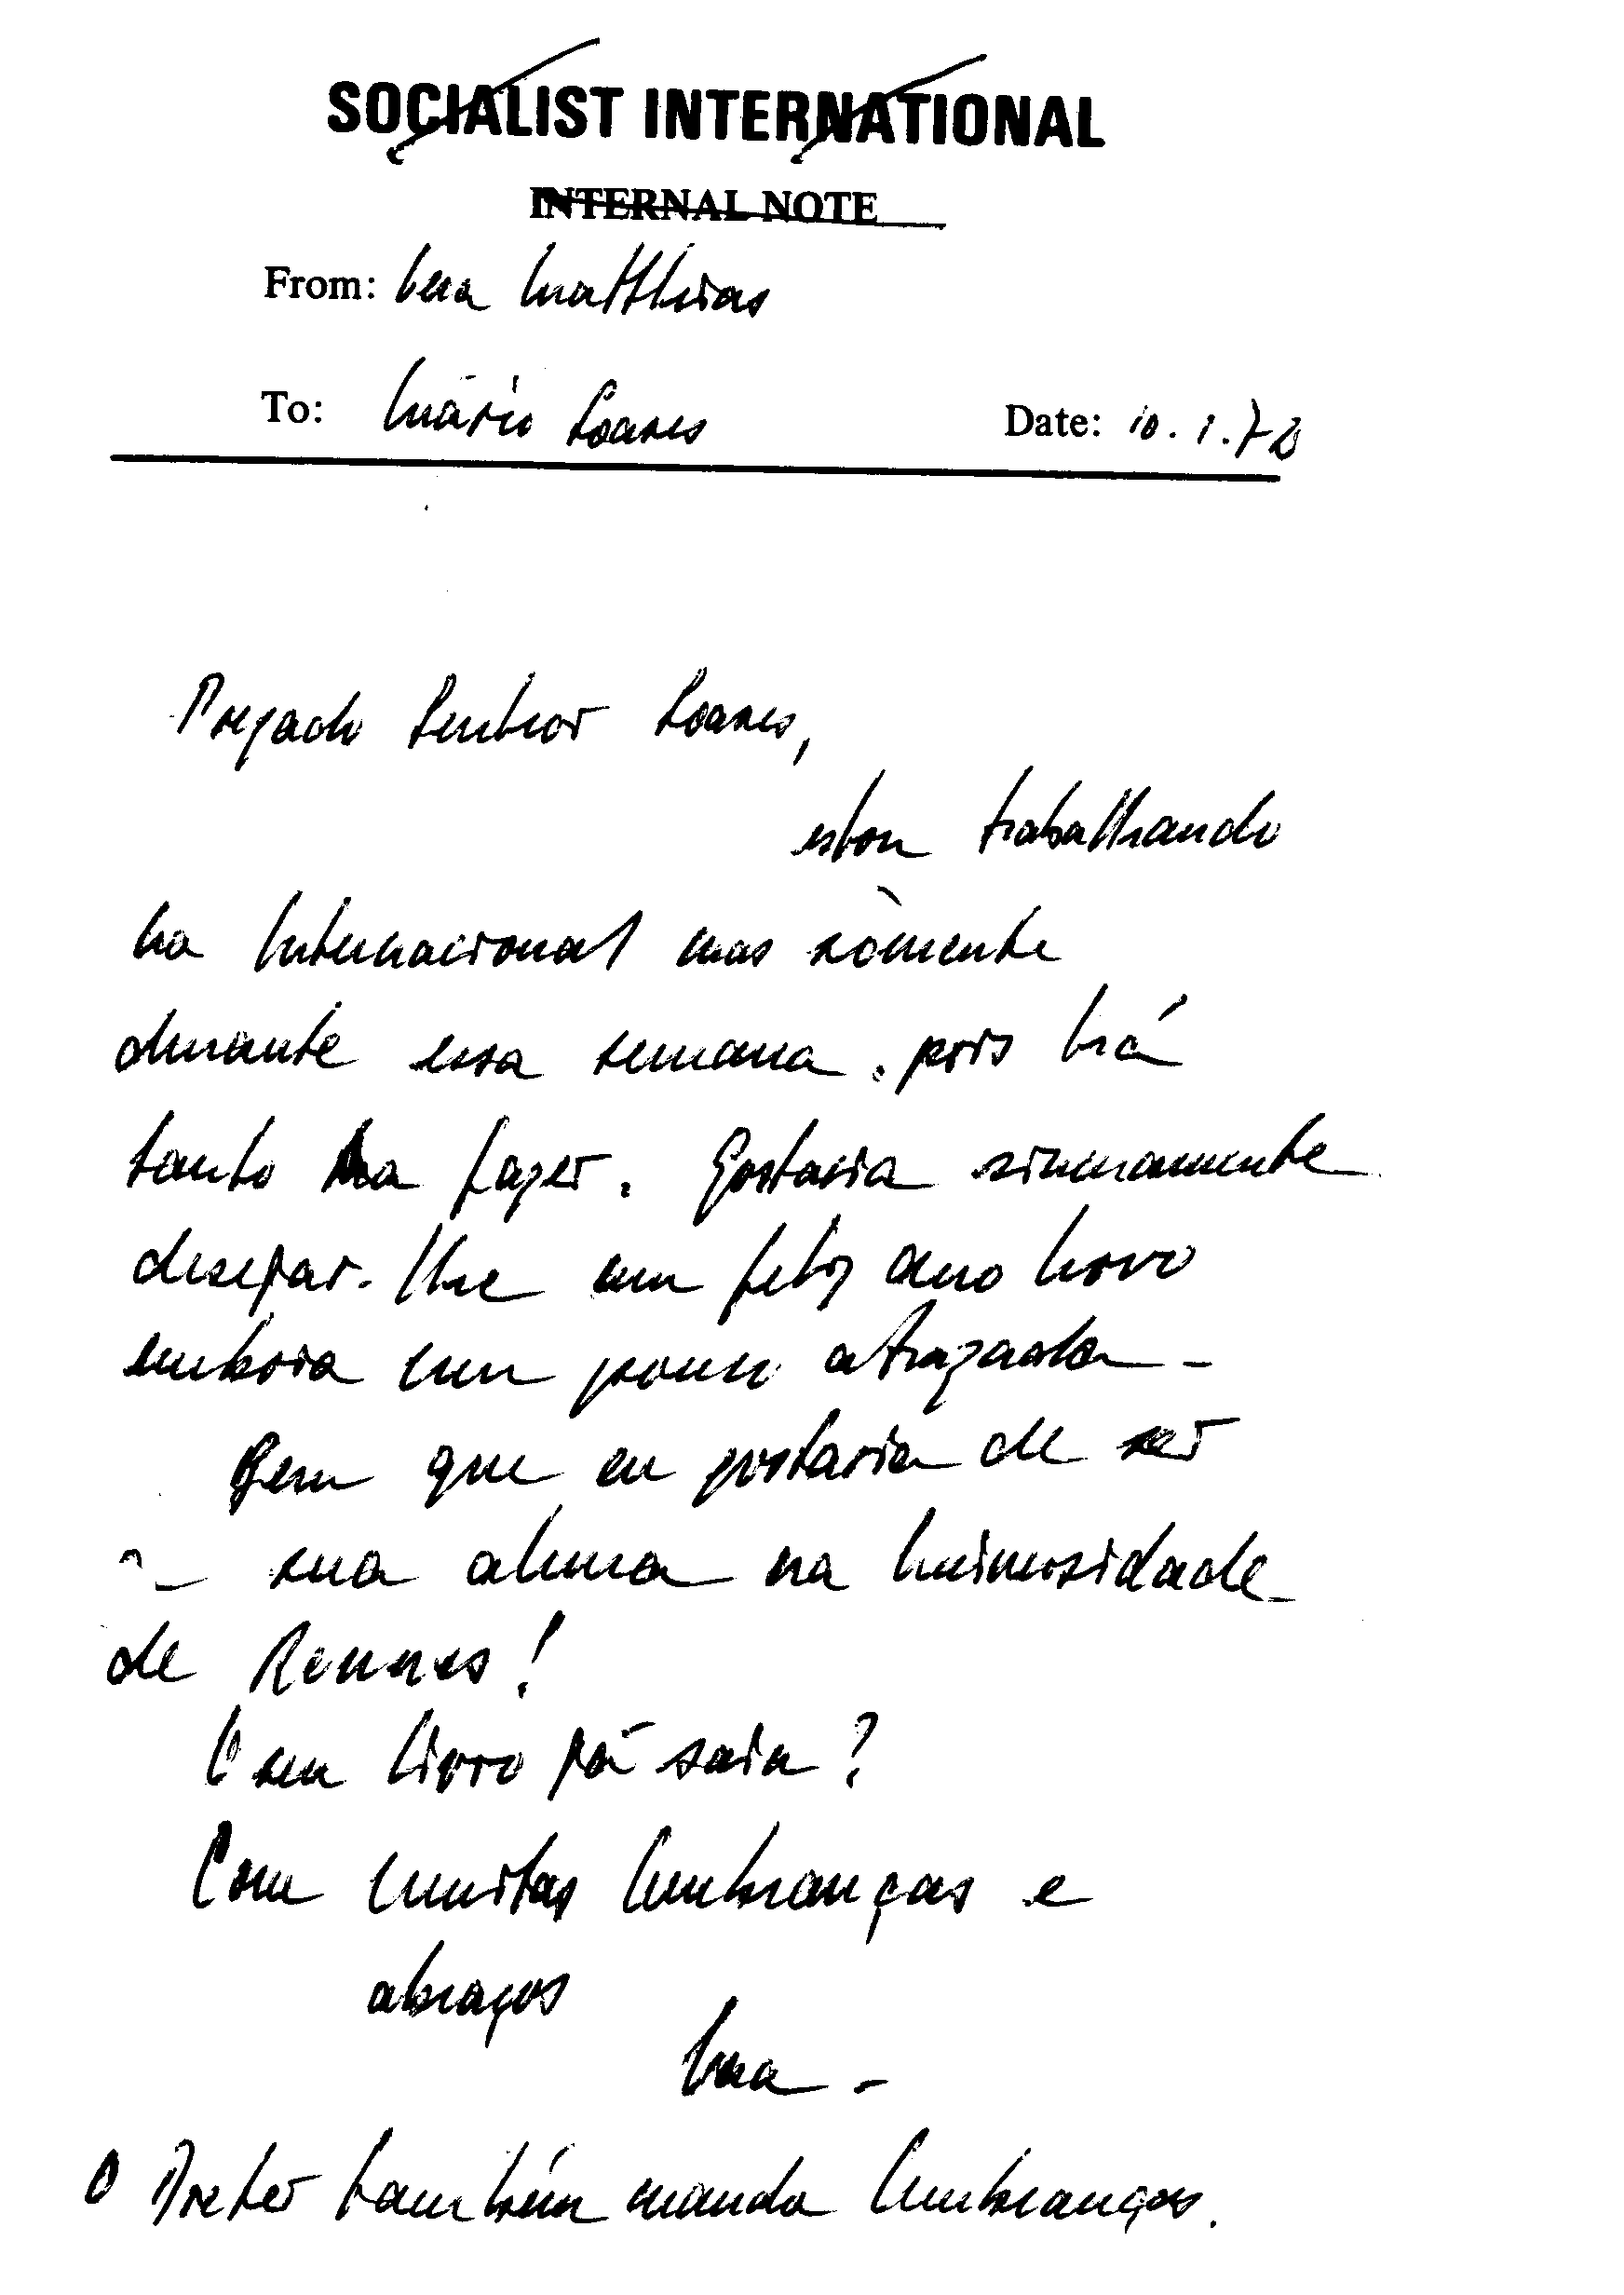 SOCIALIST INTERNATIONAL
INTERNAL NOTE
From: Vera Matthias
To: Mário Soares Date: 10.1.73
Prezado Senhor Soares,
estou trabalhando
na Internacional mas sòmente
durante essa semana. pois há
tanto a fazer. Gostaria sinceramente
desejar-lhe um feliz ano novo
embora um pouco atrazada-
Bem que eu gostaria de ser
sua aluna na Universidade
de Rennes!
O seu livro já saiu?
Com muitas lembranças e
abraços
Vera-
O Dieter também manda lembranças.